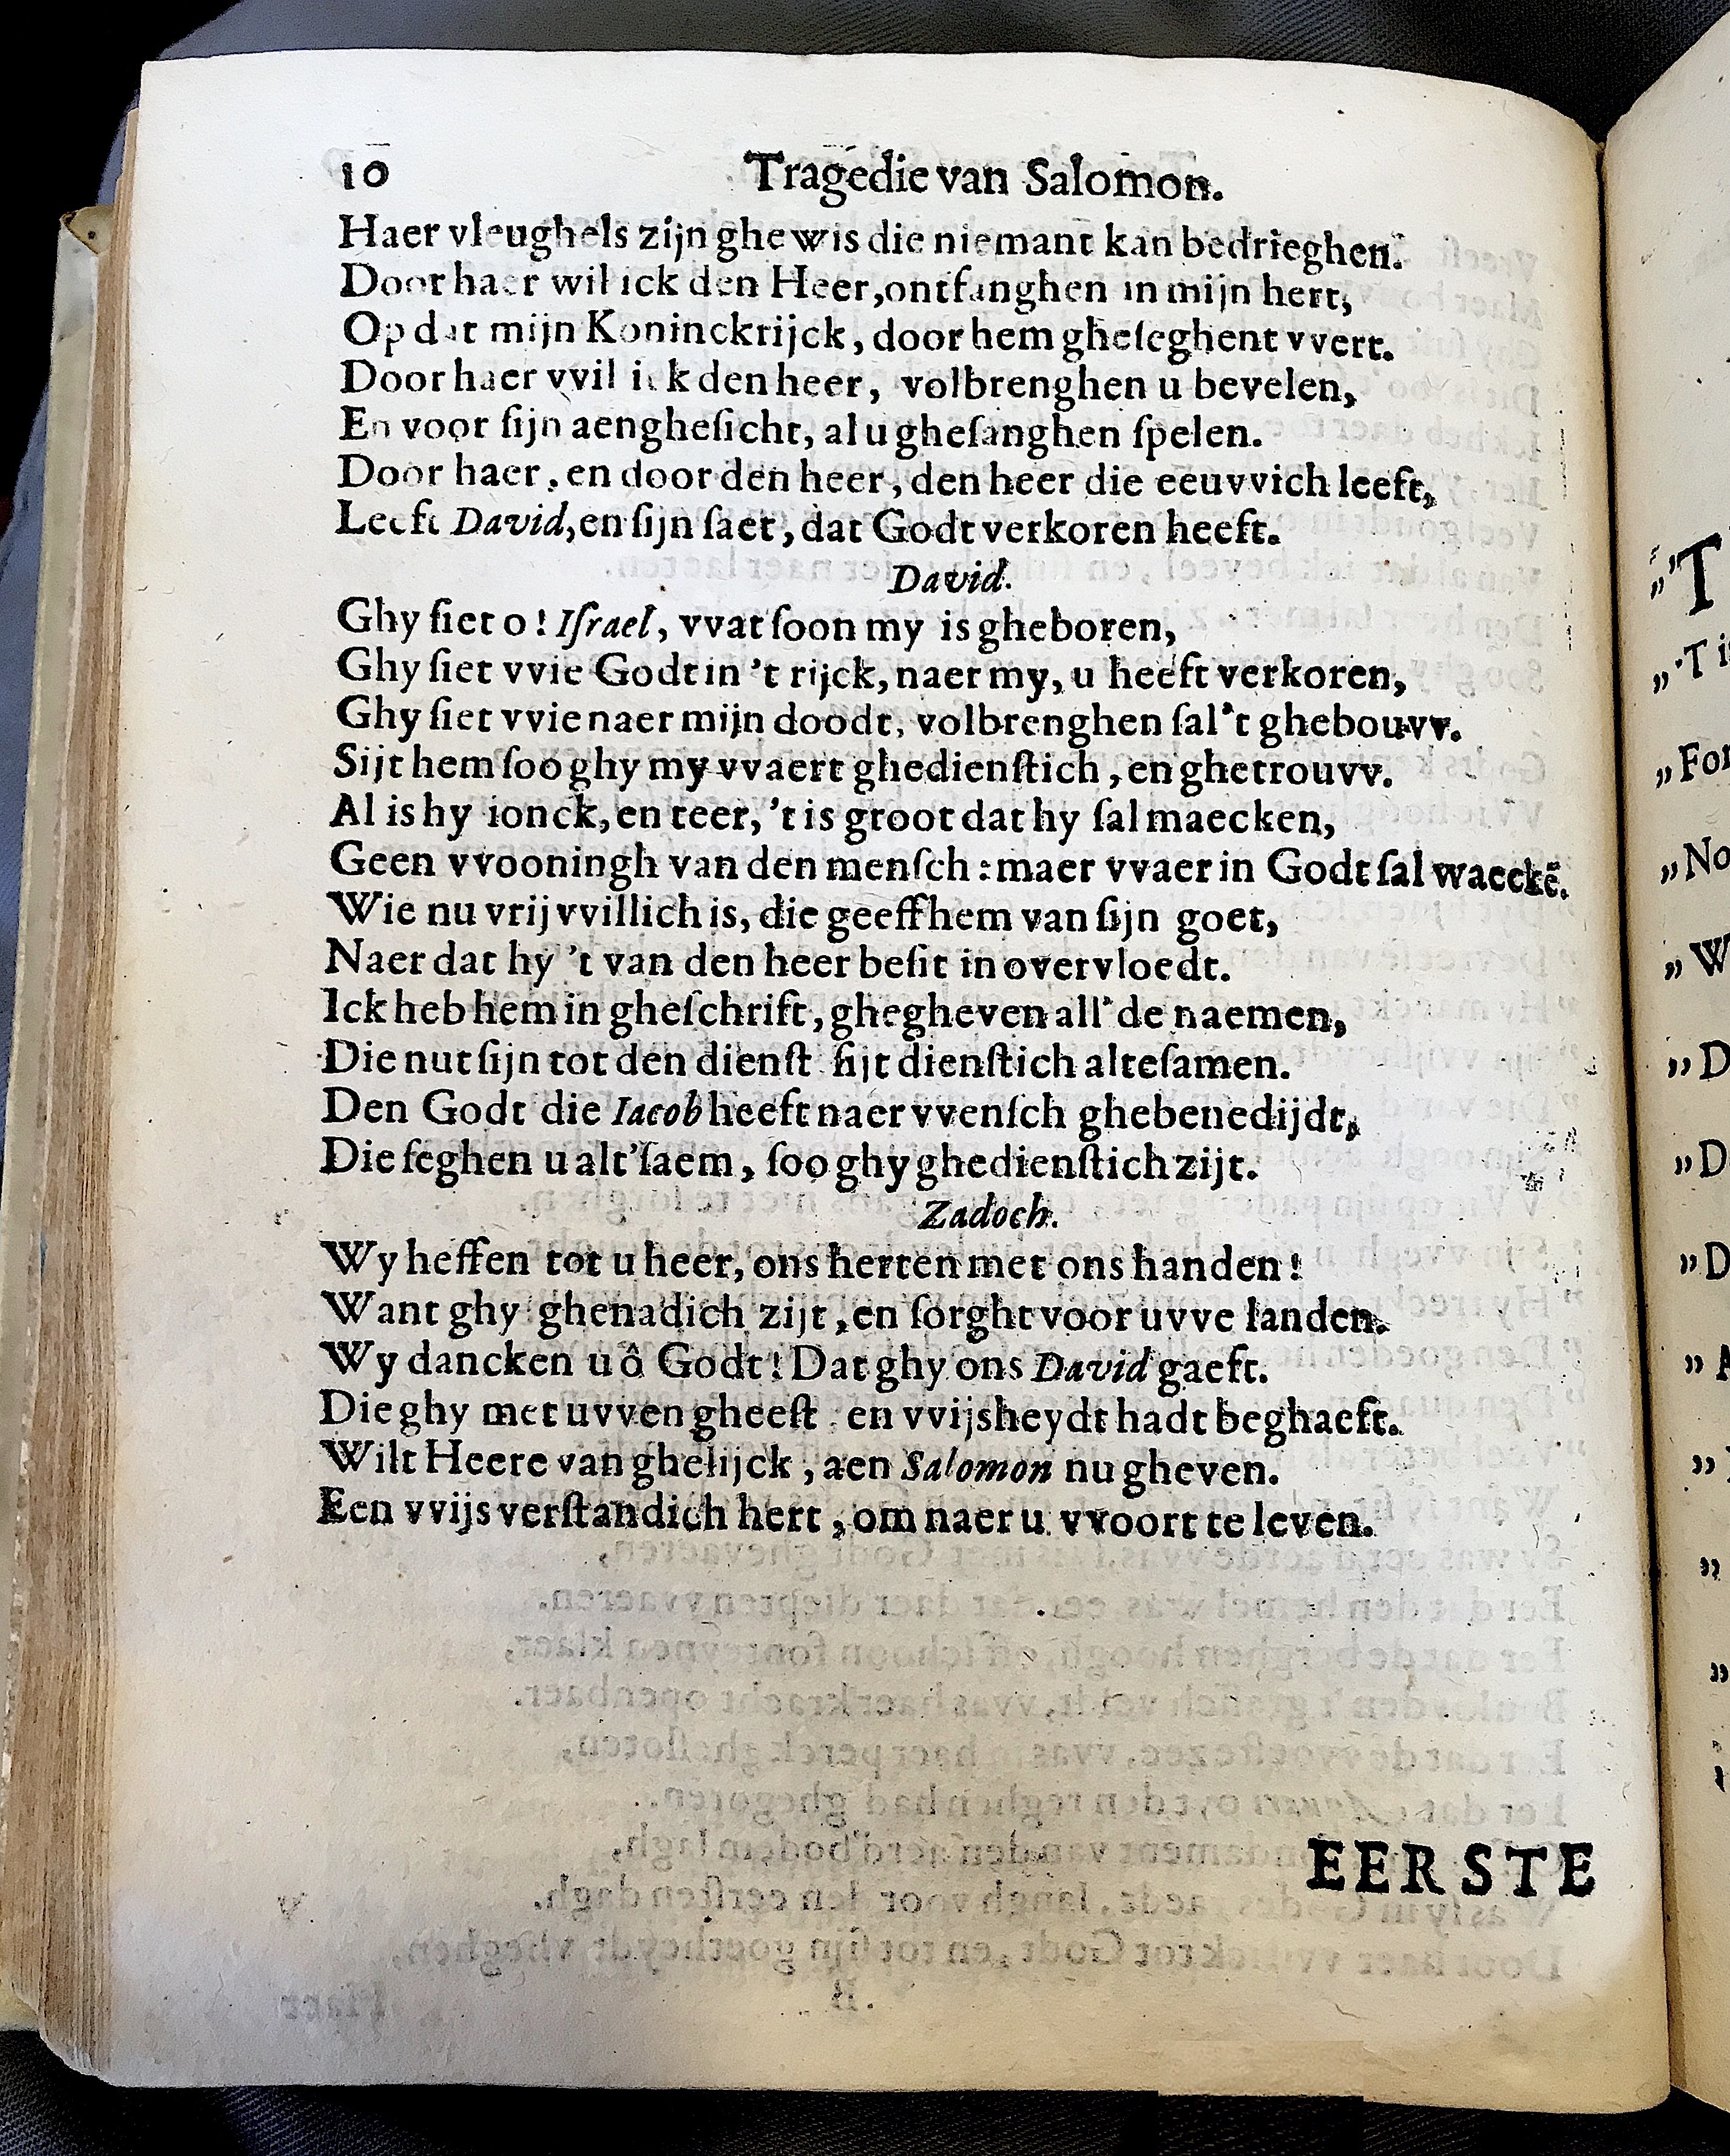 10 Tragedie van Salomon.
Haer vleughels zijn ghewis die niemant kan bedrieghen.
Door haer wil ick den Heer, ontfanghen in mijn hert,
Op dat mijn Koninckrijck, door hem gheſeghent vvert.
Door haer vvil ick den heer, volbrenghen u bevelen,
En voor ſijn aengheſicht, al u gheſanghen ſpelen.
Door haer, en door den heer, den heer die eeuvvich leeft,
Leeft David, en ſijn ſaet, dat Godt verkoren heeft.
David.
Ghy ſiet o! Iſrael, vvat ſoon my is gheboren,
Ghy ſiet vvie Godt in 't rijck, naer my, u heeft verkoren,
Ghy ſiet vvie naer mijn doodt, volbrenghen ſal 't ghebouvv.
Sijt hem ſoo ghy my vvaert ghedienſtich, en ghetrouvv.
Al is hy ionck, en teer, 't is groot dat hy ſal maecken,
Geen vvooningh van den menſch: maer vvaer in Godt ſal waeckē.
Wie nu vrijvvillich is, die geeff hem van ſijn goet,
Naer dat hy 't van den heer beſit in overvloedt.
Ick heb hem in gheſchrift, ghegheven all' de naemen,
Die nut ſijn tot den dienſt ſijt dienſtich alteſamen.
Den Godt die Iacob heeft naer vvenſch ghebenedijdt,
Die ſeghen u alt'ſaem, ſoo ghy ghedienſtich zijt.
Zadoch.
Wy heffen tot u heer, ons herten met ons handen!
Want ghy ghenadich zijt, en ſorght voor uvve landen.
Wy dancken u ô Godt! Dat ghy ons David gaeft.
Die ghy met uvven gheeſt, en vvijsheydt hadt beghaeft.
Wilt Heere van ghelijck, aen Salomon nu gheven.
Een vvijs verſtandich hert, om naer u vvoort te leven.
EERSTE
„'T
„'T i
„For
„No
„W
„D
„D
„D